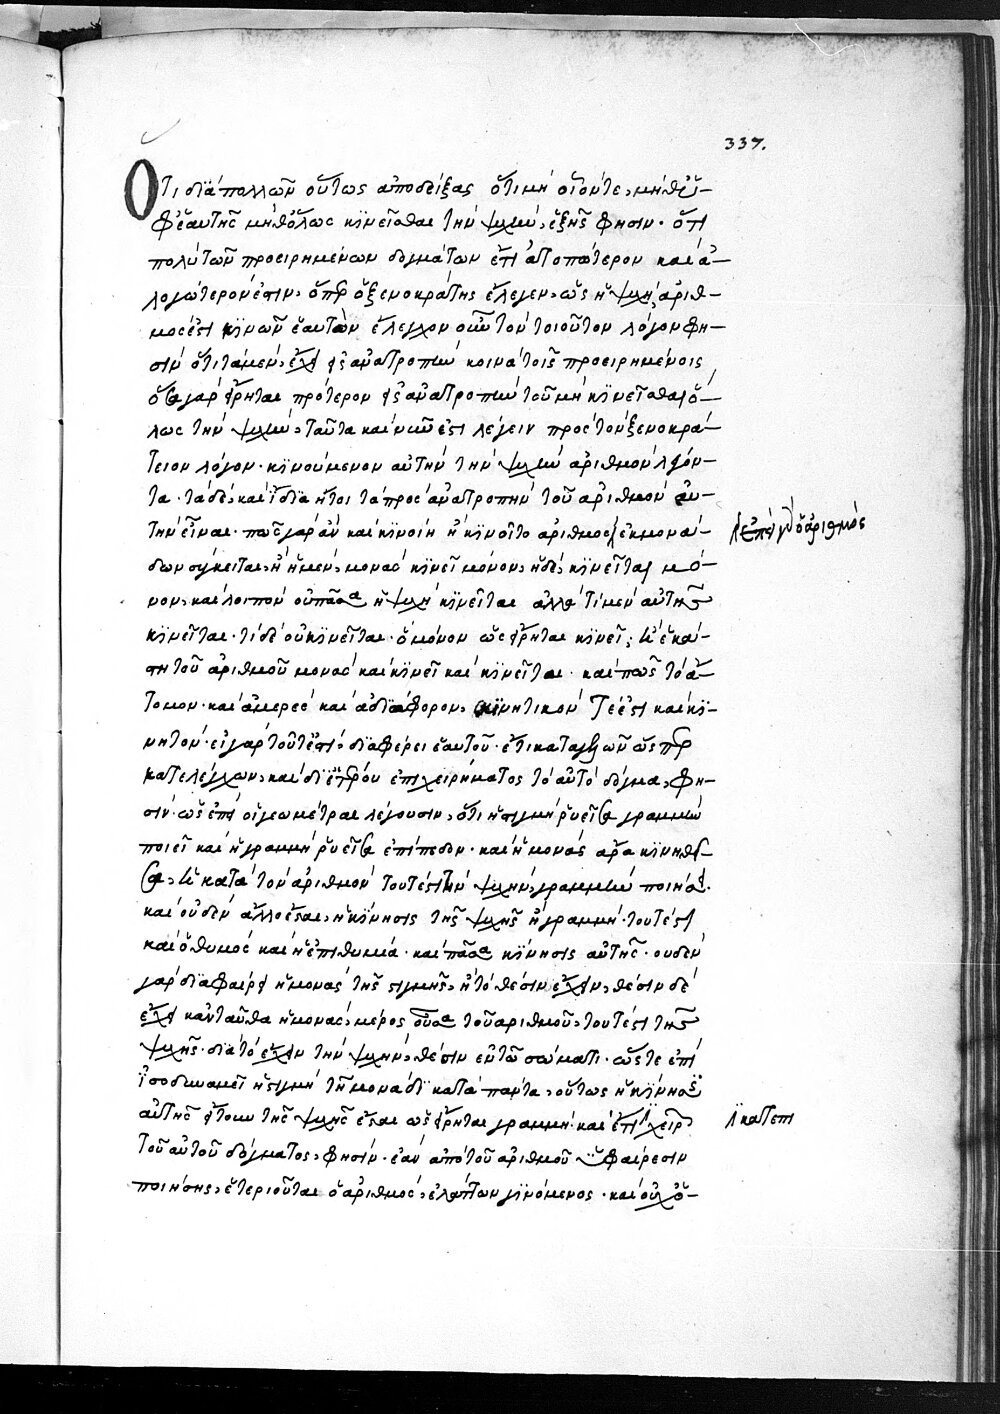 337.
Ὅτι διὰ πολλῶν οὕτως ἀποδείξας ὅτι μὴ οἷόν τε, μήθ' ὑ-
φ' ἑαυτῆς μήθ' ὅλως κινεῖσθαι τὴν ψυχήν, ἑξῆς φησιν· ὅτι
πολὺ τῶν προειρημένων δογμάτων ἔτι ἀτοπώτερον καὶ ἀ-
λογώτερόν ἐστιν, ὅπερ ὁ ξενοκράτης ἔλεγεν, ὡς ἡ ψυχὴ ἀριθ-
μός ἐστι κινῶν ἑαυτὸν ἔλεγχον οὖν τὸν τοιοῦτον λόγον φη-
σὶν ὅτι τὰ μὲν, ἔχει εἰς ἀνατροπὴν κοινὰ τοῖς προειρημένοις
ὅσα γὰρ εἴρηται πρότερον εἰς ἀνατροπὴν τοῦ μὴ κινεῖσθαι ὅ-
λως τὴν ψυχήν, ταῦτα καὶ νῦν ἐστι λέγειν πρὸς τὸν ξενοκρά-
τειον λόγον· κινούμενον αὐτὴν τὴν ψυχὴν ἀριθμὸν λέγον-
τα· τὰ δὲ, καὶ ἴδια ἤτοι τὰ πρὸς ἀνατροπὴν τοῦ ἀριθμὸν αὐ-
τὴν εἶναι· πῶς γὰρ ἂν καὶ κινοίη ἢ κινοῖτο ἀριθμός, ἐκ μονά-
δων σύγκειται, ἢ ἡ μὲν, μονὰς κινεῖ μόνον, ἡ δὲ, κινεῖται μό-
νον, καὶ λοιπὸν οὐ πᾶσα ἡ ψυχὴ κινεῖται ἀλλά τι μὲν αὐτῆς
κινεῖται· τὶ δὲ οὐ κινεῖται· ὃ μόνον ὡς εἴρηται κινεῖ; ἢ ἑκά-
στη τοῦ ἀριθμοῦ μονὰς καὶ κινεῖ καὶ κινεῖται· καὶ πῶς τὸ ἄ-
τομον· καὶ ἀμερὲς καὶ ἀδιάφορον, κινητικόν τέ ἐστι καὶ κι-
νητόν· εἰ γὰρ τοῦτό ἐστι, διαφέρει ἑαυτοῦ· ἔτι καταλ ὢν ὥσπερ
κατελέγχων, καὶ δι' ἑτέρου ἐπιχειρήματος τὸ αὐτὸ δόγμα, φη-
σὶν· ὡς ἐπεὶ οἱ γεωμέτραι λέγουσιν, ὅτι ἡ στιγμὴ ῥυεῖσα γραμμὴν
ποιεῖ καὶ ἡ γραμμὴ ῥυεῖσα ἐπίπεδον· καὶ ἡ μονὰς ἄρα κινηθεῖ-
σα, ἡ κατὰ τὸν ἀριθμὸν τουτέστι τὴν ψυχήν, γραμμὴν ποιήσει·
καὶ οὐδὲν ἄλλο ἔσται, ἡ κίνησις τῆς ψυχῆς ἢ γραμμή· τουτέστι
καὶ ὁ θυμὸς καὶ ἡ ἐπιθυμία· καὶ πᾶσα κίνησις αὐτῆς· οὐδὲν
γὰρ διαφέρει ἡ μονὰς τῆς στιγμῆς, ἢ τὸ θέσιν ἔχειν, θέσιν δὲ
ἔχει κἀνταῦθα ἡ μονάς, μέρος οὖσα τοῦ ἀριθμοῦ, τουτέστι τῆς
ψυχῆς· διὰ τὸ ἔχειν τὴν ψυχὴν, θέσιν ἐν τῷ σώματι· ὥστε ἐπεὶ
ἰσοδυναμεῖ ἡ στιγμὴ τῇ μονάδι κατὰ πάντα, οὕτως ἡ κίνησις
αὐτῆς ἤτοι τῆς ψυχῆς ἔσται ὡς εἴρηται γραμμή· καὶ ἔτι χειρ
τοῦ αὐτοῦ δόγματος, φησίν· ἐὰν ἀπὸ τοῦ ἀριθμοῦ ὑφαίρεσιν
ποιήσῃς, ἑτεριοῦται ὁ ἀριθμός, ἐλάττων γινόμενος· καὶ οὐχ ὁ-
ἐπεὶ γὰρ ὁ ἀριθμὸς
κατεπι